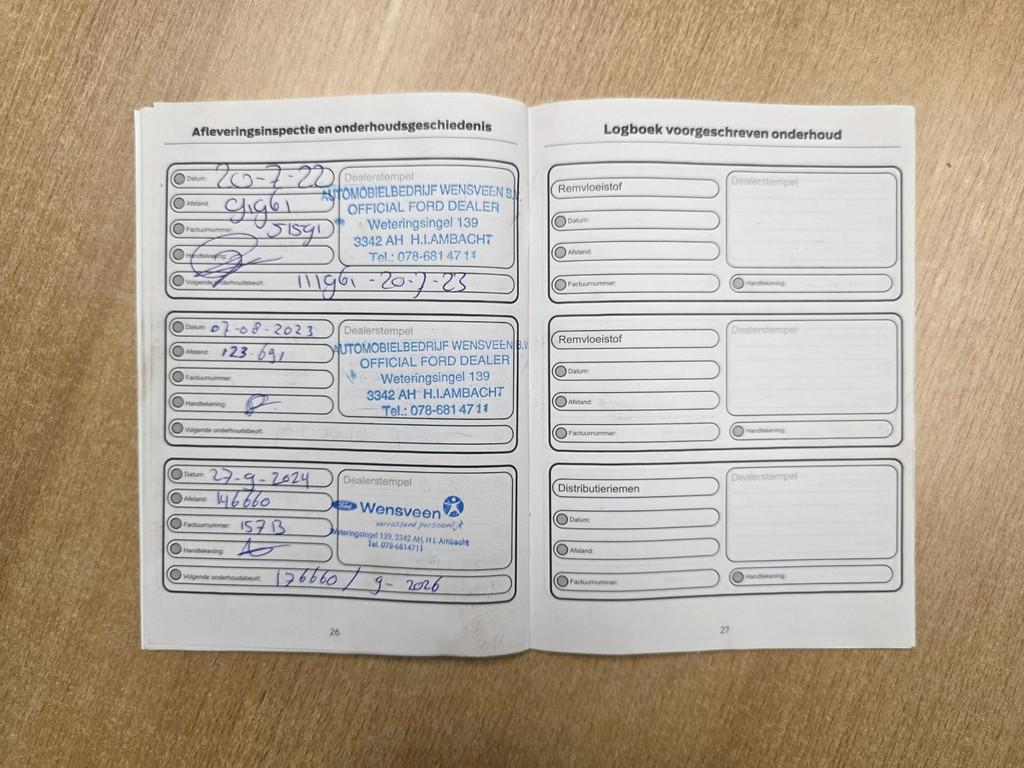 Afleveringsinspectie en onderhoudsgeschiedenis
Datum: 20-7-22
Afstand: 91961
Factuurnummer: 51591
Handtekening:
Volgende onderhoudsbeurt: 111961 - 20-7-23
Dealerstempel
AUTOMOBIELBEDRIJF WENSVEEN B.V.
OFFICIAL FORD DEALER
Weteringsingel 139
3342 AH H.I.AMBACHT
Tel.: 078-681 47 11
Datum: 07-08-2023
Afstand: 123-691
Factuurnummer:
Handtekening:
Volgende onderhoudsbeurt:
Dealerstempel
AUTOMOBIELBEDRIJF WENSVEEN B.V
OFFICIAL FORD DEALER
Weteringsingel 139
3342 AH H.I.AMBACHT
Tel.: 078-681 47 11
Datum: 27-9-2024
Afstand: 146660
Factuurnummer: 157B
Handtekening:
Volgende onderhoudsbeurt: 176660 / 9-2026
Dealerstempel
Ford Wensveen
verrassend persoonlijk
Weteringsingel 139, 3342 AH, H.I. Ambacht
Tel. 078-6814711
26
Logboek voorgeschreven onderhoud
Remvloeistof
Datum:
Afstand:
Factuurnummer:
Dealerstempel
Handtekening:
Remvloeistof
Datum:
Afstand:
Factuurnummer:
Dealerstempel
Handtekening:
Distributieriemen
Datum:
Afstand:
Factuurnummer:
Dealerstempel
Handtekening:
27